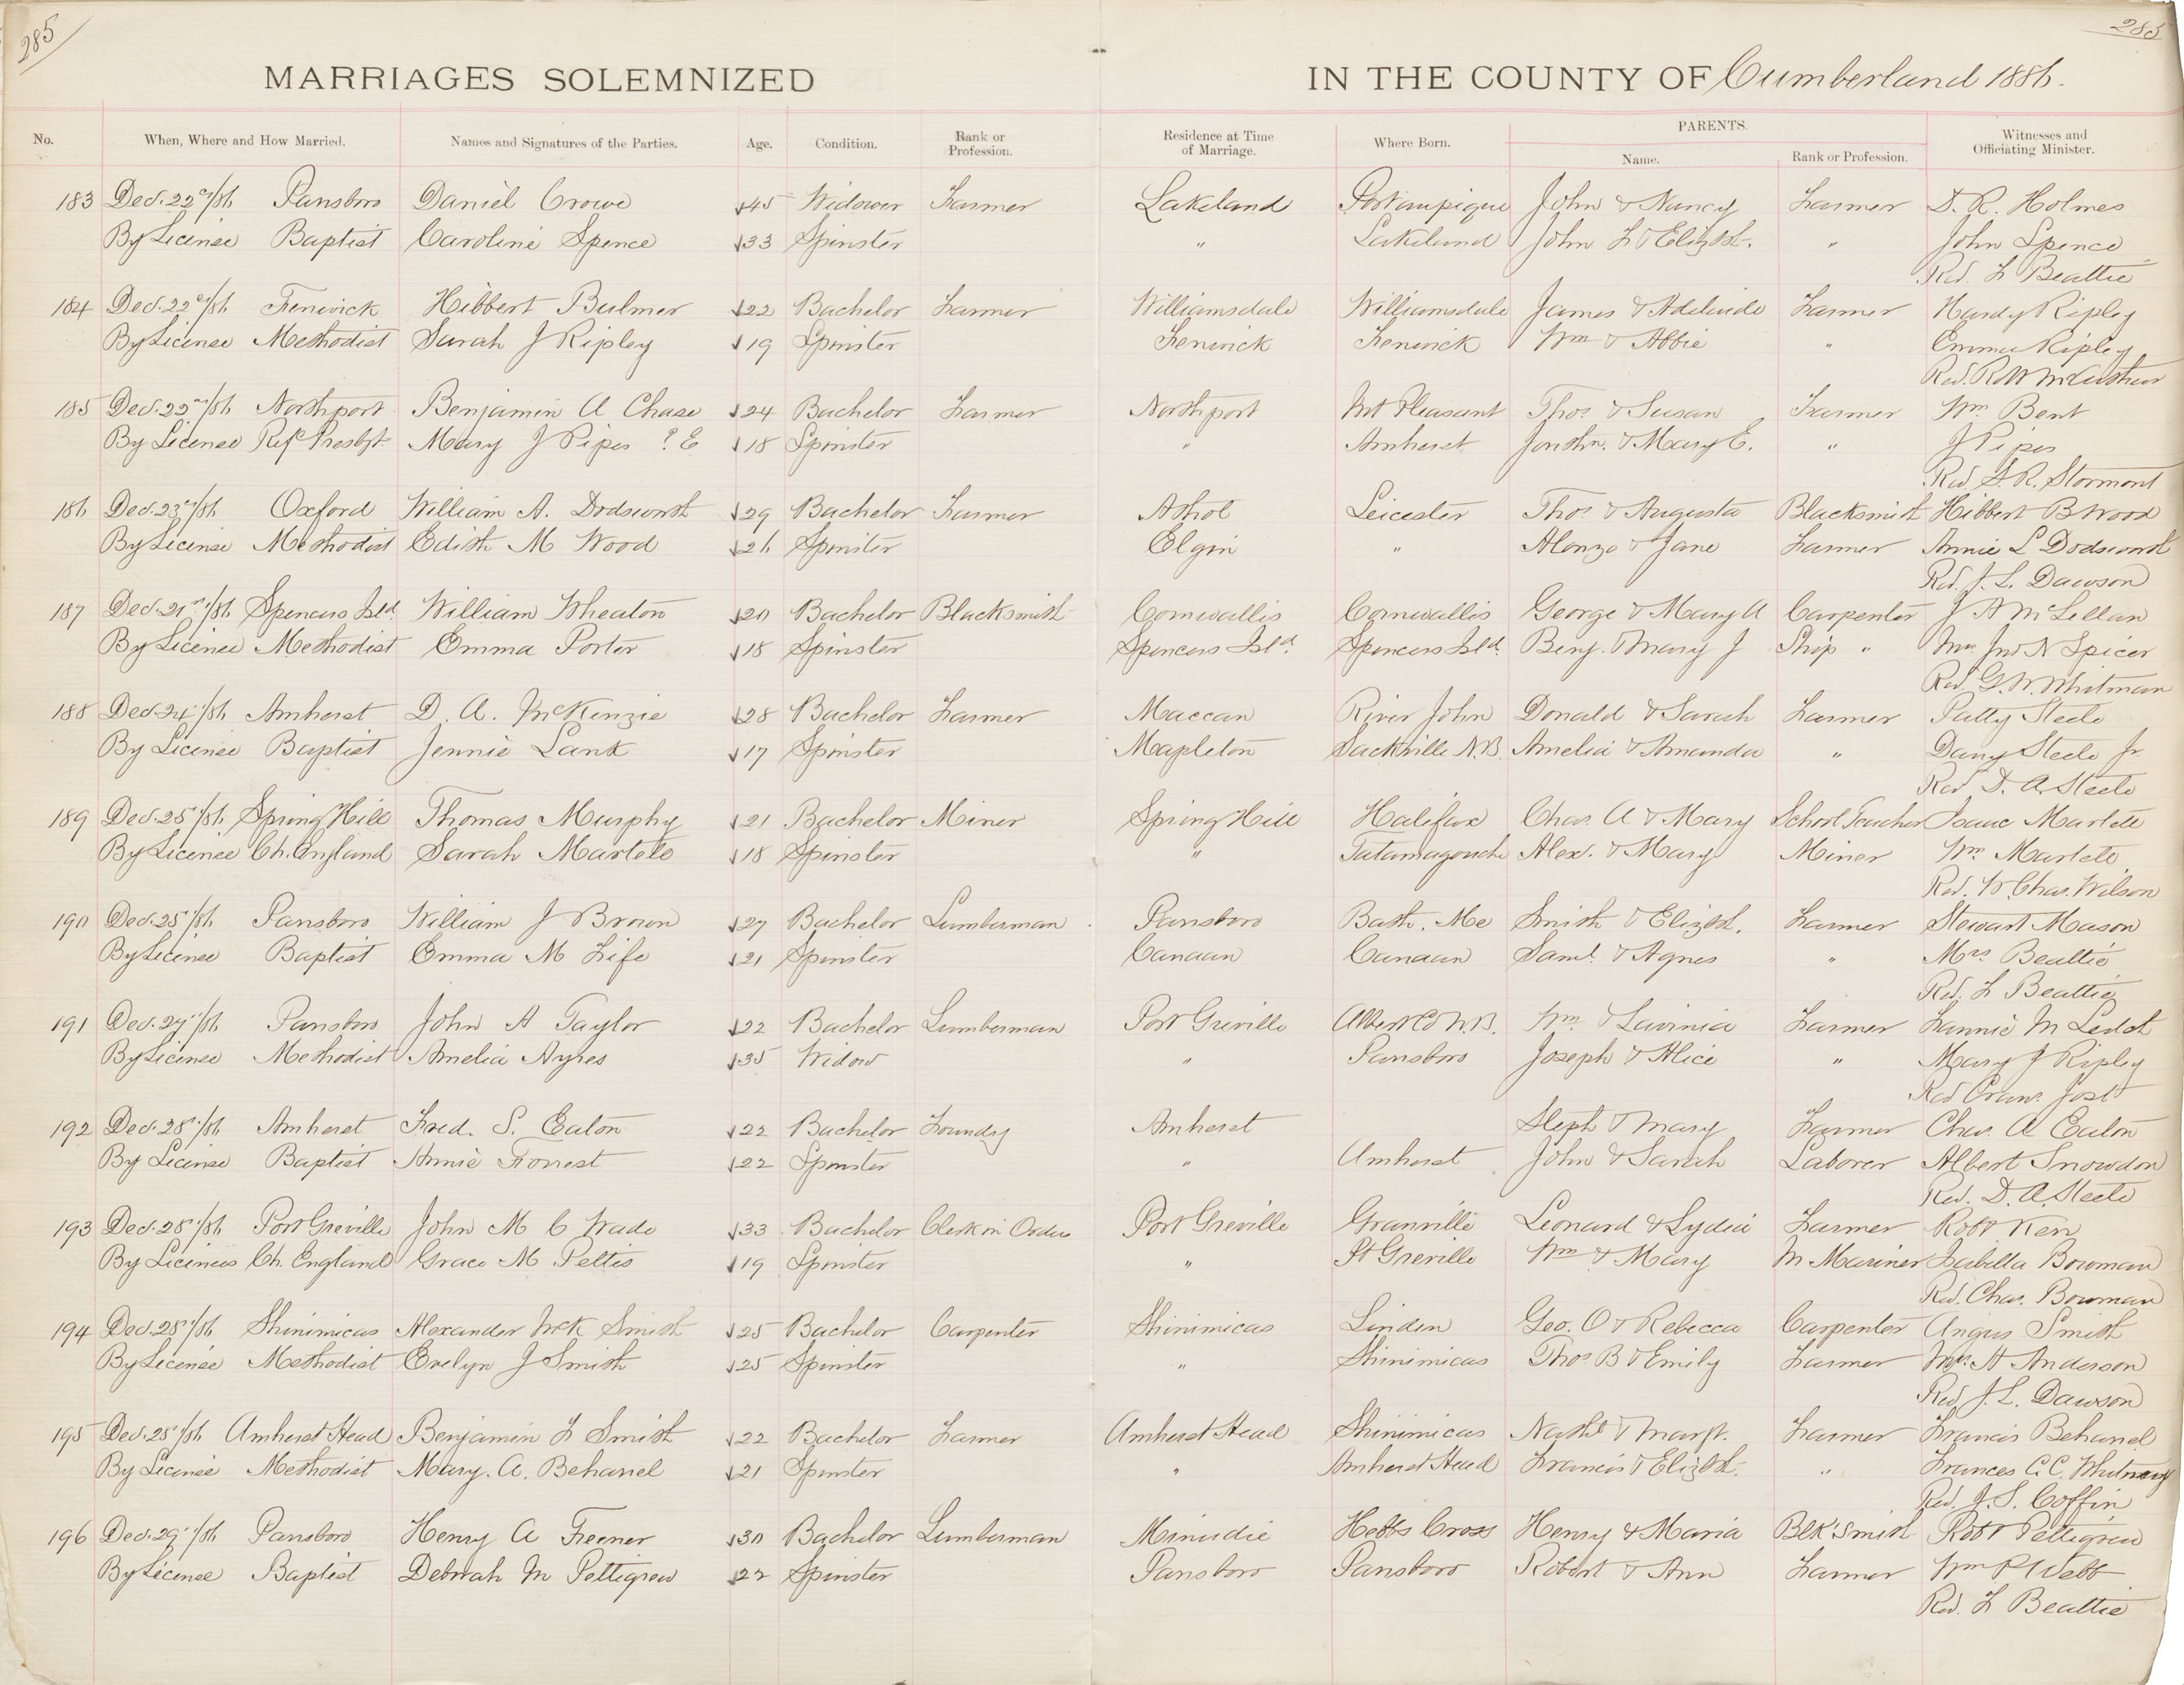 285
285
MARRIAGES SOLEMNIZED IN THE COUNTY OF Cumberland 1886.
No. When, Where and How Married. Names and Signatures of the Parties. Age. Condition. Rank or Profession. Residence at Time of Marriage. Where Born. PARENTS. Name. Rank or Profession. Witnesses and Officiating Minister.
183 Dec. 22nd/86 Parrsboro Daniel Crowe 45 Widower Farmer Lakeland Portaupique John & Nancy Farmer D. R. Holmes
By License Baptist Caroline Spence 33 Spinster " Lakeland John F & Elizbt. " John Spence
Rev. F Beattie
184 Dec. 22nd/86 Fenwick Hibbert Bulmer 22 Bachelor Farmer Williamsdale Williamsdale James & Adelaide Farmer Hardy Ripley
By License Methodist Sarah J Ripley 19 Spinster Fenwick Fenwick Wm & Abbie " Emma Ripley
Rev. Robt
185 Dec. 22nd/86 Northport Benjamin A Chase 24 Bachelor Farmer Northport Mt Pleasant Thos & Susan Farmer Wm Bent
By License Ref Presbyt. Mary J Pipes ? E 18 Spinster " Amherst Jonthn. & Mary E. " J Pipes
Rev. S. R. Stormont
186 Dec. 23rd/86 Oxford William A. Dodsworth 29 Bachelor Farmer Athol Leicester Thos & Augusta Blacksmith Hibbert B Wood
By License Methodist Edith M Wood 26 Spinster Elgin " Alonzo & Jane Farmer Annie L Dodsworth
Rev. J. L. Dawson
187 Dec. 21st/86 Spencers Isld William Wheaton 20 Bachelor Blacksmith Cornwallis Cornwallis George & Mary A Carpenter J A McLellan
By License Methodist Emma Porter 18 Spinster Spencers Isld. Spencers Isld. Benj. & Mary J Ship " Mrs Jno N Spicer
Rev. G. W. Whitman
188 Dec. 24/86 Amherst D. A. McKenzie 28 Bachelor Farmer Maccan River John Donald & Sarah Farmer Patty Steele
By License Baptist Jennie Lank 17 Spinster Mapleton Sackville N.B. Amelia & Amanda " Davy Steele Jr.
Rev D. A. Steele
189 Dec. 25/86 Spring Hill Thomas Murphy 21 Bachelor Miner Spring Hill Halifax Chas. A & Mary School Teacher Isaac Martell
By License Ch. England Sarah Martell 18 Spinster " Tatamagouche Alex. & Mary Miner Wm Martell
Rev. W Chas. Wilson
190 Dec. 25/86 Parrsboro William J Brown 27 Bachelor Lumberman Parrsboro Bath. Me Smith & Elizbt. Farmer Stewart Mason
By License Baptist Emma M Fife 21 Spinster Canaan Canaan Saml. & Agnes " Mrs Beattie
Rev. F Beattie
191 Dec. 27/86 Parrsboro John A Taylor 22 Bachelor Lumberman Port Greville Albert Co N.B. Wm. & Lavinia Farmer Fannie M
By License Methodist Amelia Ayres 35 Widow " Parrsboro Joseph & Alice " Mary J Ripley
Rev Cran. Jost
192 Dec. 28/86 Amherst Fred. S. Eaton 22 Bachelor Foundry Amherst Steph & Mary Farmer Chas. A Eaton
By License Baptist Annie Forrest 22 Spinster " Amherst John & Sarah Laborer Albert Snowdon
Rev. D. A. Steele
193 Dec. 28/86 Port Greville John M C Wade 33 Bachelor Clerk in Orders Port Greville Granville Leonard & Lydia Farmer Robt Kerr
By Licenses Ch. England Grace M Pettis 19 Spinster " Pt Greville Wm & Mary M Mariner Isabella Bowman
Rev. Chas. Bowman
194 Dec. 28/86 Shinimicas Alexander McK Smith 25 Bachelor Carpenter Shinimicas Linden Geo. O & Rebecca Carpenter Angus Smith
By License Methodist Evelyn J Smith 25 Spinster " Shinimicas Thos B & Emily Farmer Mrs. A Anderson
Rev J. L. Dawson
195 Dec. 28/86 Amherst Head Benjamin F Smith 22 Bachelor Farmer Amherst Head Shinimicas Nathl & Margt. Farmer Francis Behanel
By License Methodist Mary. A. Behanel 21 Spinster " Amherst Head Francis & Elizbt. " Frances C. C. Whitney
Rev. J. S. Coffin
196 Dec. 29/86 Parrsboro Henry A Feener 30 Bachelor Lumberman Minudie Hebbs Cross Henry & Maria Blk'smith Robt Pettigrew
By License Baptist Deborah M Pettigrew 22 Spinster Parrsboro Parrsboro Robert & Ann Farmer Wm R Webb
Rev. F Beattie